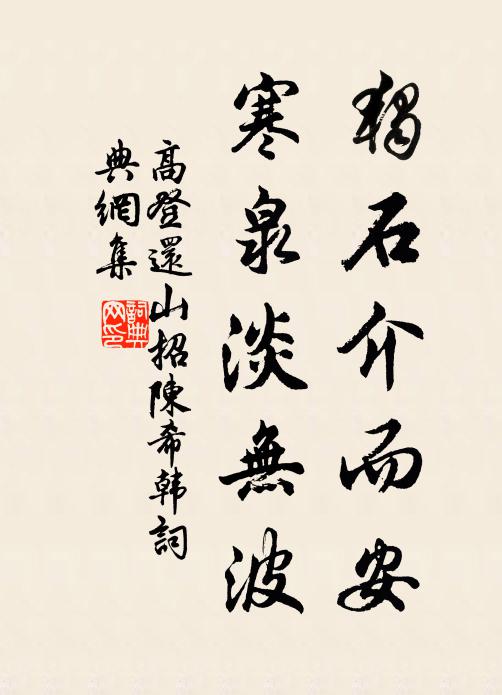 獨石介而安
寒泉淡無波
高登還山招陳希韩詞
典網集
詞典網印